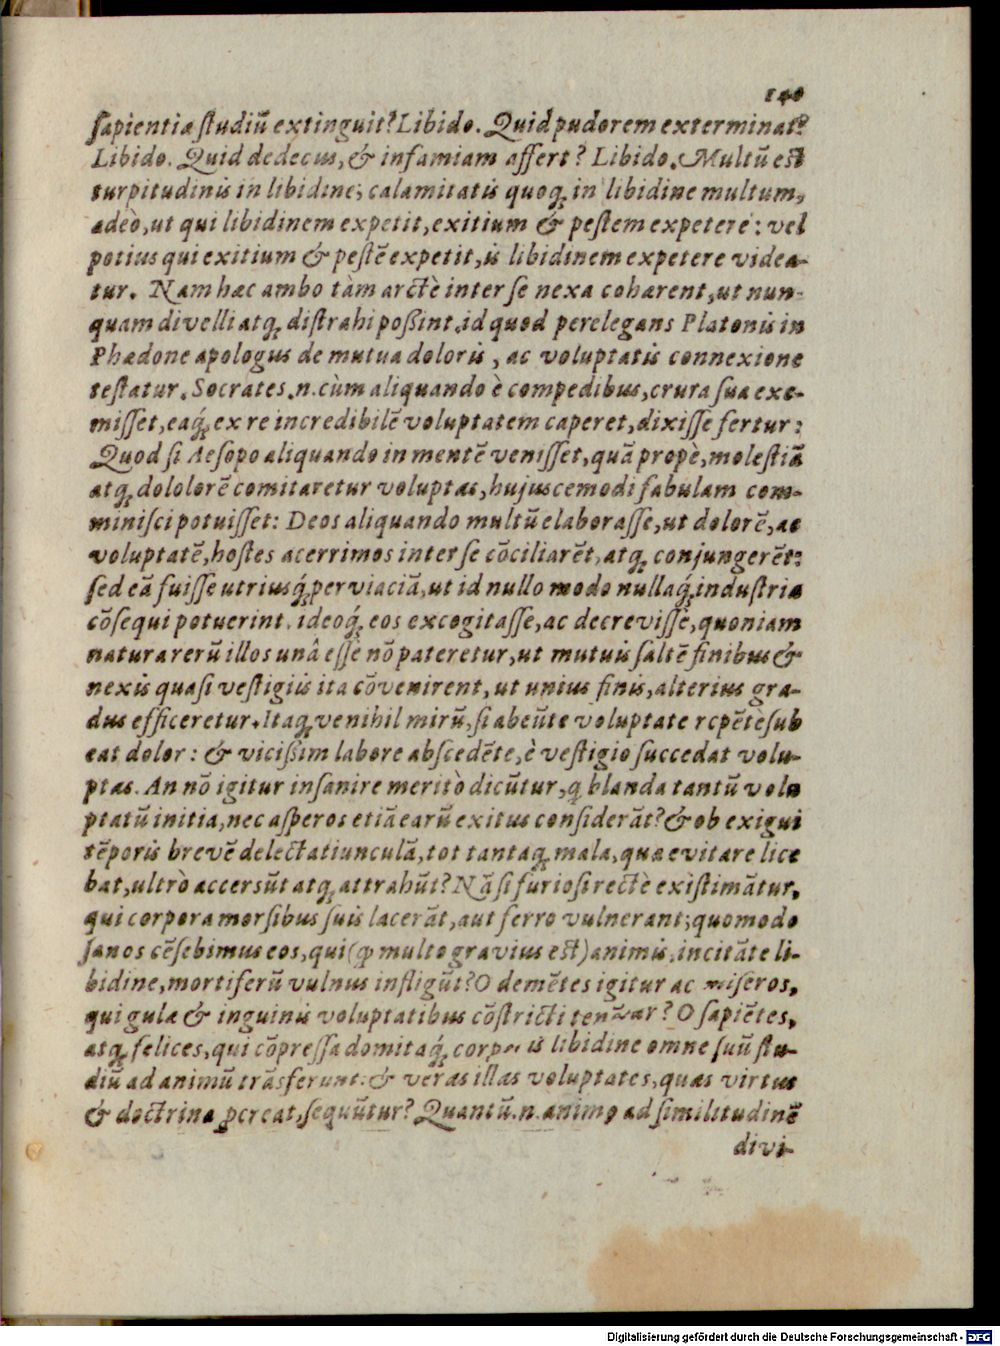 140
ſapientiæ ſtudiū extinguit? Libido. Quid pudorem exterminat?
Libido. Quid dedecus, & infamiam affert? Libido. Multū est
turpitudinis in libidine; calamitatis quoq; in libidine multum,
adeò, ut qui libidinem expetit, exitium & peſtem expetere: vel
potius qui exitium & peſtē expetit, is libidinem expetere videa-
tur. Nam hæc ambo tàm arctè inter ſe nexa cohærent, ut nun-
quam divelli atq; diſtrahi poßint. id quod perelegans Platonis in
Phædone apologus de mutua doloris, ac voluptatis connexione
teſtatur. Socrates .n. cùm aliquando è compedibus, crura ſua exe-
miſſet, eaq́; ex re incredibilē voluptatem caperet, dixiſſe fertur:
Quod ſi Aeſopo aliquando in mentē veniſſet, quā propè, moleſtiā
atq; dololorē comitaretur voluptas, hujuscemodi fabulam com-
miniſci potuiſſet: Deos aliquando multū elaboraſſe, ut dolorē, ac
voluptatē, hoſtes acerrimos inter ſe cōciliarēt, atq; conjungerēt:
ſed eā fuiſſe utriusq́; perviaciā, ut id nullo modo nullaq́; induſtria
cōſequi potuerint. ideoq́; eos excogitaſſe, ac decreviſſe, quoniam
natura rerū illos unâ eſſe nō pateretur, ut mutuis ſaltē finibus &
nexis quaſi veſtigiis ita cōvenirent, ut unius finis, alterius gra-
dus efficeretur. Itaq; ve nihil mirū, ſi abeūte voluptate repētè ſub
eat dolor: & vicißim labore abſcedēte, è veſtigio ſuccedat volu-
ptas. An nō igitur inſanire meritò dicūtur, q; blanda tantū volu
ptatū initia, nec aſperos etiā earū exitus conſiderāt? & ob exigui
tēporis brevē delectatiunculā, tot tantaq; mala, quæ evitare lice
bat, ultrò accerſūt atq; attrahūt? Nā ſi furioſi rectè exiſtimātur,
qui corpora morſibus ſuis lacerāt, aut ferro vulnerant; quomodo
ſanos cēſebimus eos, qui (ꝙ multo gravius est) animis, incitāte li-
bidine, mortiferū vulnus infligūt? O demētes igitur ac miſeros,
qui gulæ & inguinis voluptatibus cōſtricti O ſapiētes,
atq; felices, qui cōpreſſa domitaq́; libidine omne ſuū ſtu-
diū ad animū trāsferunt: & veras illas voluptates, quas virtus
& doctrina ꝓcreat, ſequūtur? Quantū .n. animo ad ſimilitudinē
divi-
Digitalisierung gefördert durch die Deutsche Forschungsgemeinschaft - DFG